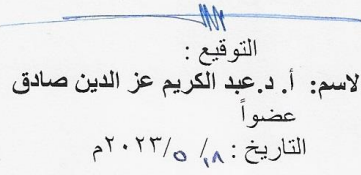 التوقيع :
الاسم: أ. د. عبد الكريم عز الدين صادق
عضواً
التاريخ : ١٨/ ٥ /٢٠٢٣م